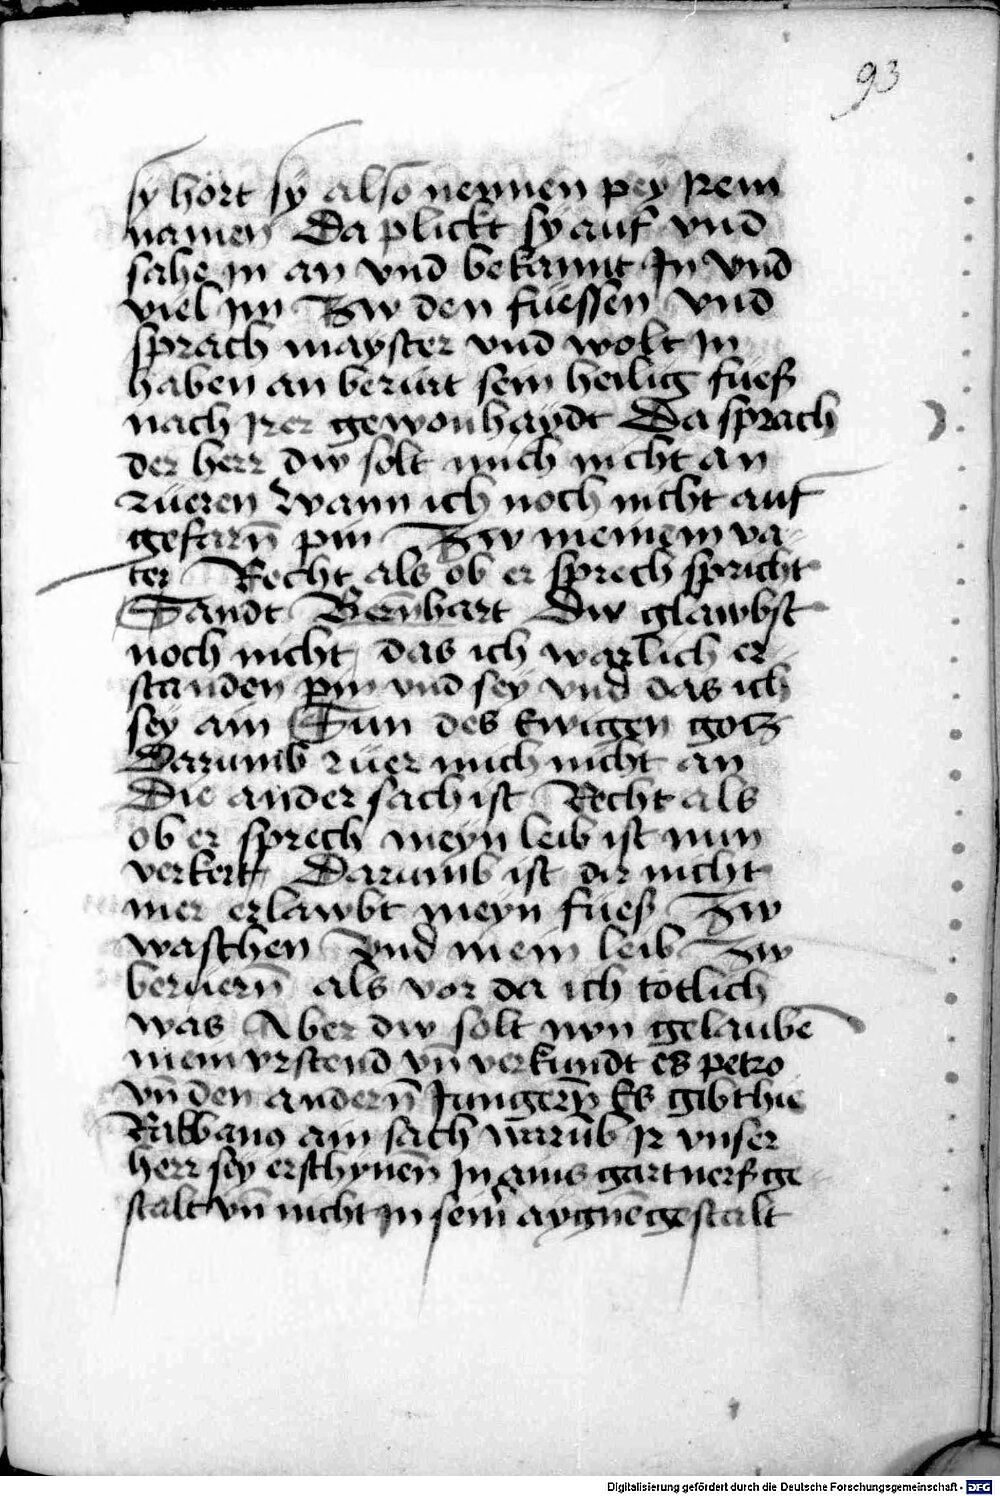 93
sy hort sy also nennen pey Irem
namen Da plickt sy auf vnd
sahe in an vnd bekannt In vnd
viel im Zw den füessen vnd
sprach mayster vnd wolt in
haben an berürt sein heilig füeß
nach Irer gewonhaydt Da sprach
der herr dw solt mich nicht an
rüeren Wann ich noch nicht auf
gefarn̄ pin Zw meinem va-
ter Recht als ob er sprech spricht
Sandt Bernhart Dw glawbst
noch nicht das ich warlich er-
standen pin vnd sey vnd das ich
sey ain Sun des Ewigen gotz
Darumb rüer mich nicht an
Die ander sach ist Recht als
ob er sprech meyn leib ist nun
verkert Darumb ist dir nicht
mer erlawbt meyn füeß Zw
waschen Vnd mein leib Zw
beruern̄ als vor da ich totlich
was Aber dw solt nwn gelaubē
mein vrstend vn̄ verkundt es petro
vn̄ den andern̄ Jungern̄ Es gibt hie
Rabbanus ain sach warūb Ir vnser
herr sey erschynen̄ In ains gartnerß ge
stalt vn̄ nicht in sein aygnē gestalt
Digitalisierung gefördert durch die Deutsche Forschungsgemeinschaft - DFG